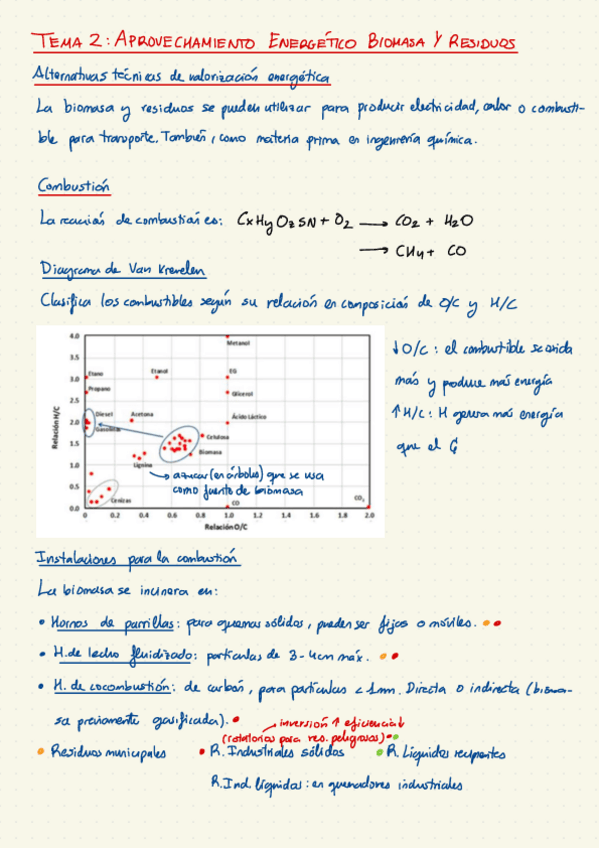 TEMA 2: APROVECHAMIENTO ENERGÉTICO BIOMASA Y RESIDUOS
Alternativas técnicas de valorización energética
La biomasa y residuos se pueden utilizar para producir electricidad, calor o combusti-
ble para transporte. También, como materia prima en ingeniería química.
Combustión
La reacción de combustión es: CxHyOzSN + O2 → CO2 + H2O
→ CH4 + CO
Diagrama de Van Krevelen
Clasifica los combustibles según su relación en composición de O/C y H/C
Relación H/C
4.0
3.5
3.0
2.5
2.0
1.5
1.0
0.5
0.0
Metanol
Etano
Etanol
EG
Propano
Glicerol
Diesel
Acetona
Ácido Láctico
Gasolinas
Celulosa
Biomasa
Lignina
→ azúcar (en árboles) que se usa
como fuente de biomasa
Cenizas
CO
CO2
0 0.2 0.4 0.6 0.8 1.0 1.2 1.4 1.6 1.8 2.0
Relación O/C
↓ O/C: el combustible se oxida
más y produce más energía
↑ H/C: H genera más energía
que el C
Instalaciones para la combustión
La biomasa se incinera en:
• Hornos de parrillas: para quemar sólidos, pueden ser fijos o móviles.
• H. de lecho fluidizado: partículas de 3-4cm máx.
• H. de cocombustión: de carbón, para partículas < 1mm. Directa o indirecta (bioma-
sa previamente gasificada).
→ inversión ↑ eficiencia ↓
(rotatorios para res. peligrosos)
• Residuos municipales • R. Industriales sólidos • R. Líquidos recipientes
R. Ind. líquidas: en quemadores industriales